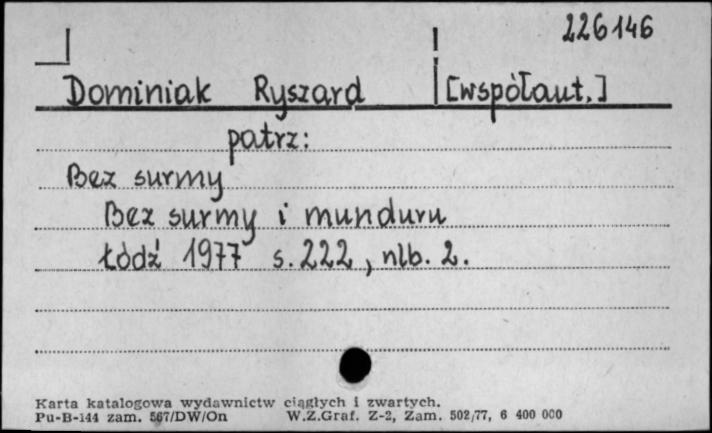 226146
Dominiak Ryszard [współaut.]
patrz:
Bez surmy
Bez surmy i munduru
Łódź 1977 s. 222, nlb. 2.
Karta katalogowa wydawnictw ciągłych i zwartych.
Pu-B-144 zam. 567/DW/On W.Z.Graf. Z-2, Zam. 502/77, 6 400 000